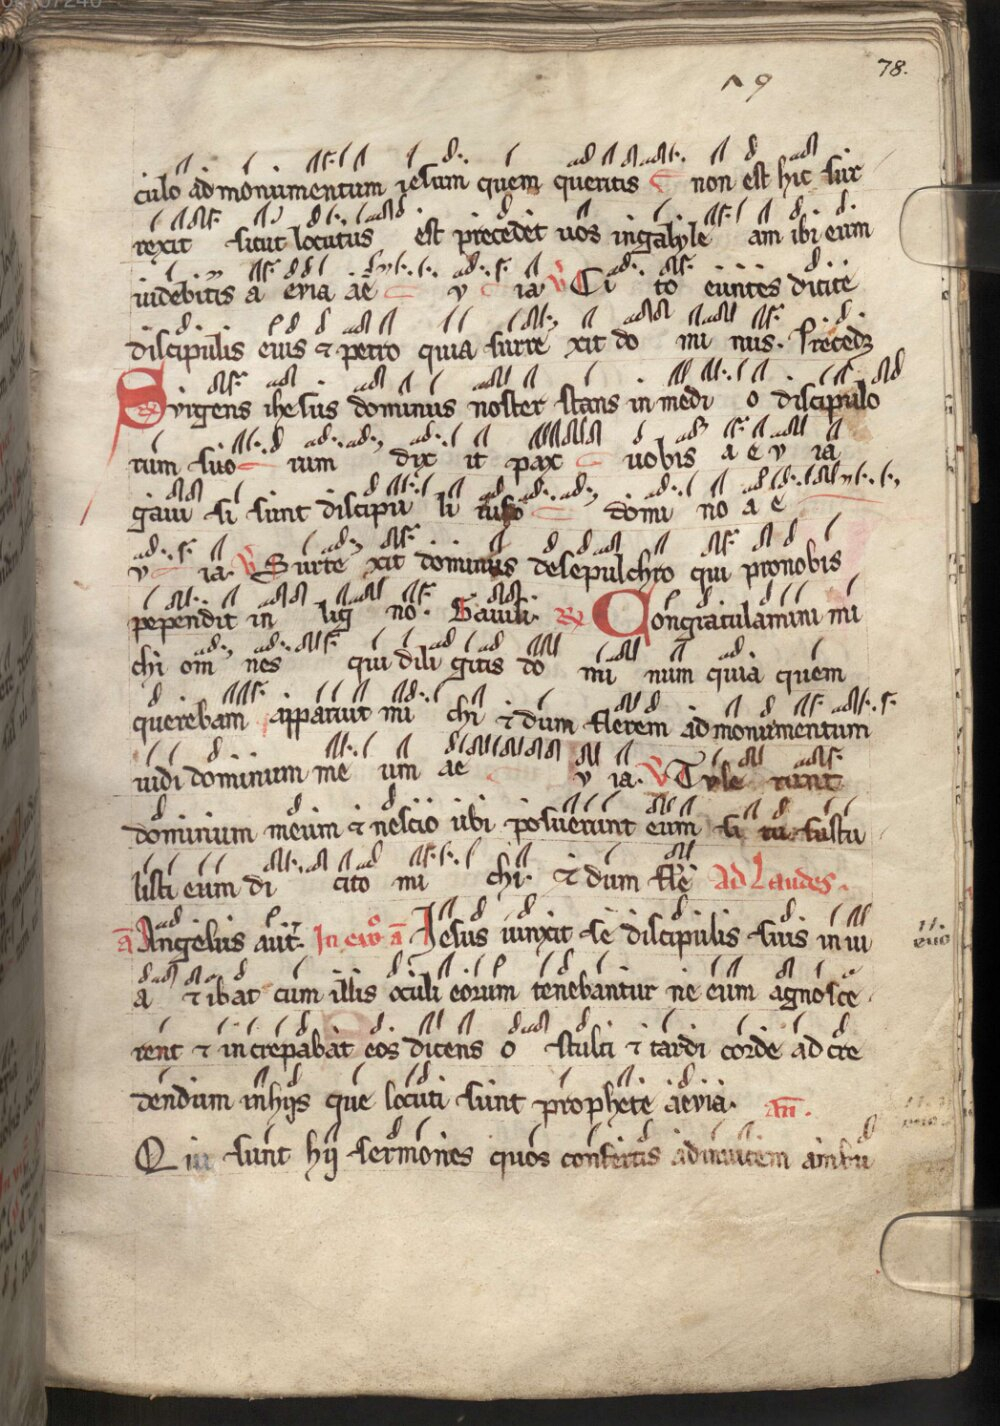 78.
culo ad monumentum iesum quem queritis non est hic sur
rexit sicut locutus est precedet uos in galyle am ibi eum
uidebitis a evia ae v ia. V Ci to euntes dicite
discipulis eius et petro quia surre xit do mi nus. Precedz
Surgens ihesus dominus noster stans in medi o discipulo
rum suo rum dix it pax uobis a e v ia
gaui si sunt discipu li uiso domi no a e
v ia. V Surre xit dominus de sepulchro qui pro nobis
pependit in lig no. Gauisi. R Congratulamini mi
chi om nes qui dili gitis do mi num quia quem
querebam apparuit mi chi et dum flerem ad monumentum
uidi dominum me um ae v ia. V Tule runt
dominum meum et nescio ubi posuerunt eum si tu sustu
listi eum di cito mi chi. et dum fle Ad Laudes.
a Angelus aut. In ew a Iesus iunxit se discipulis suis in ui
a et ibat cum illis oculi eorum tenebantur ne eum agnosce
rent et increpabat eos dicens o stulti et tardi corde ad cre
dendum in hijs que locuti sunt prophete aevia. an.
Qui sunt hij sermones quos confertis ad inuicem ambu